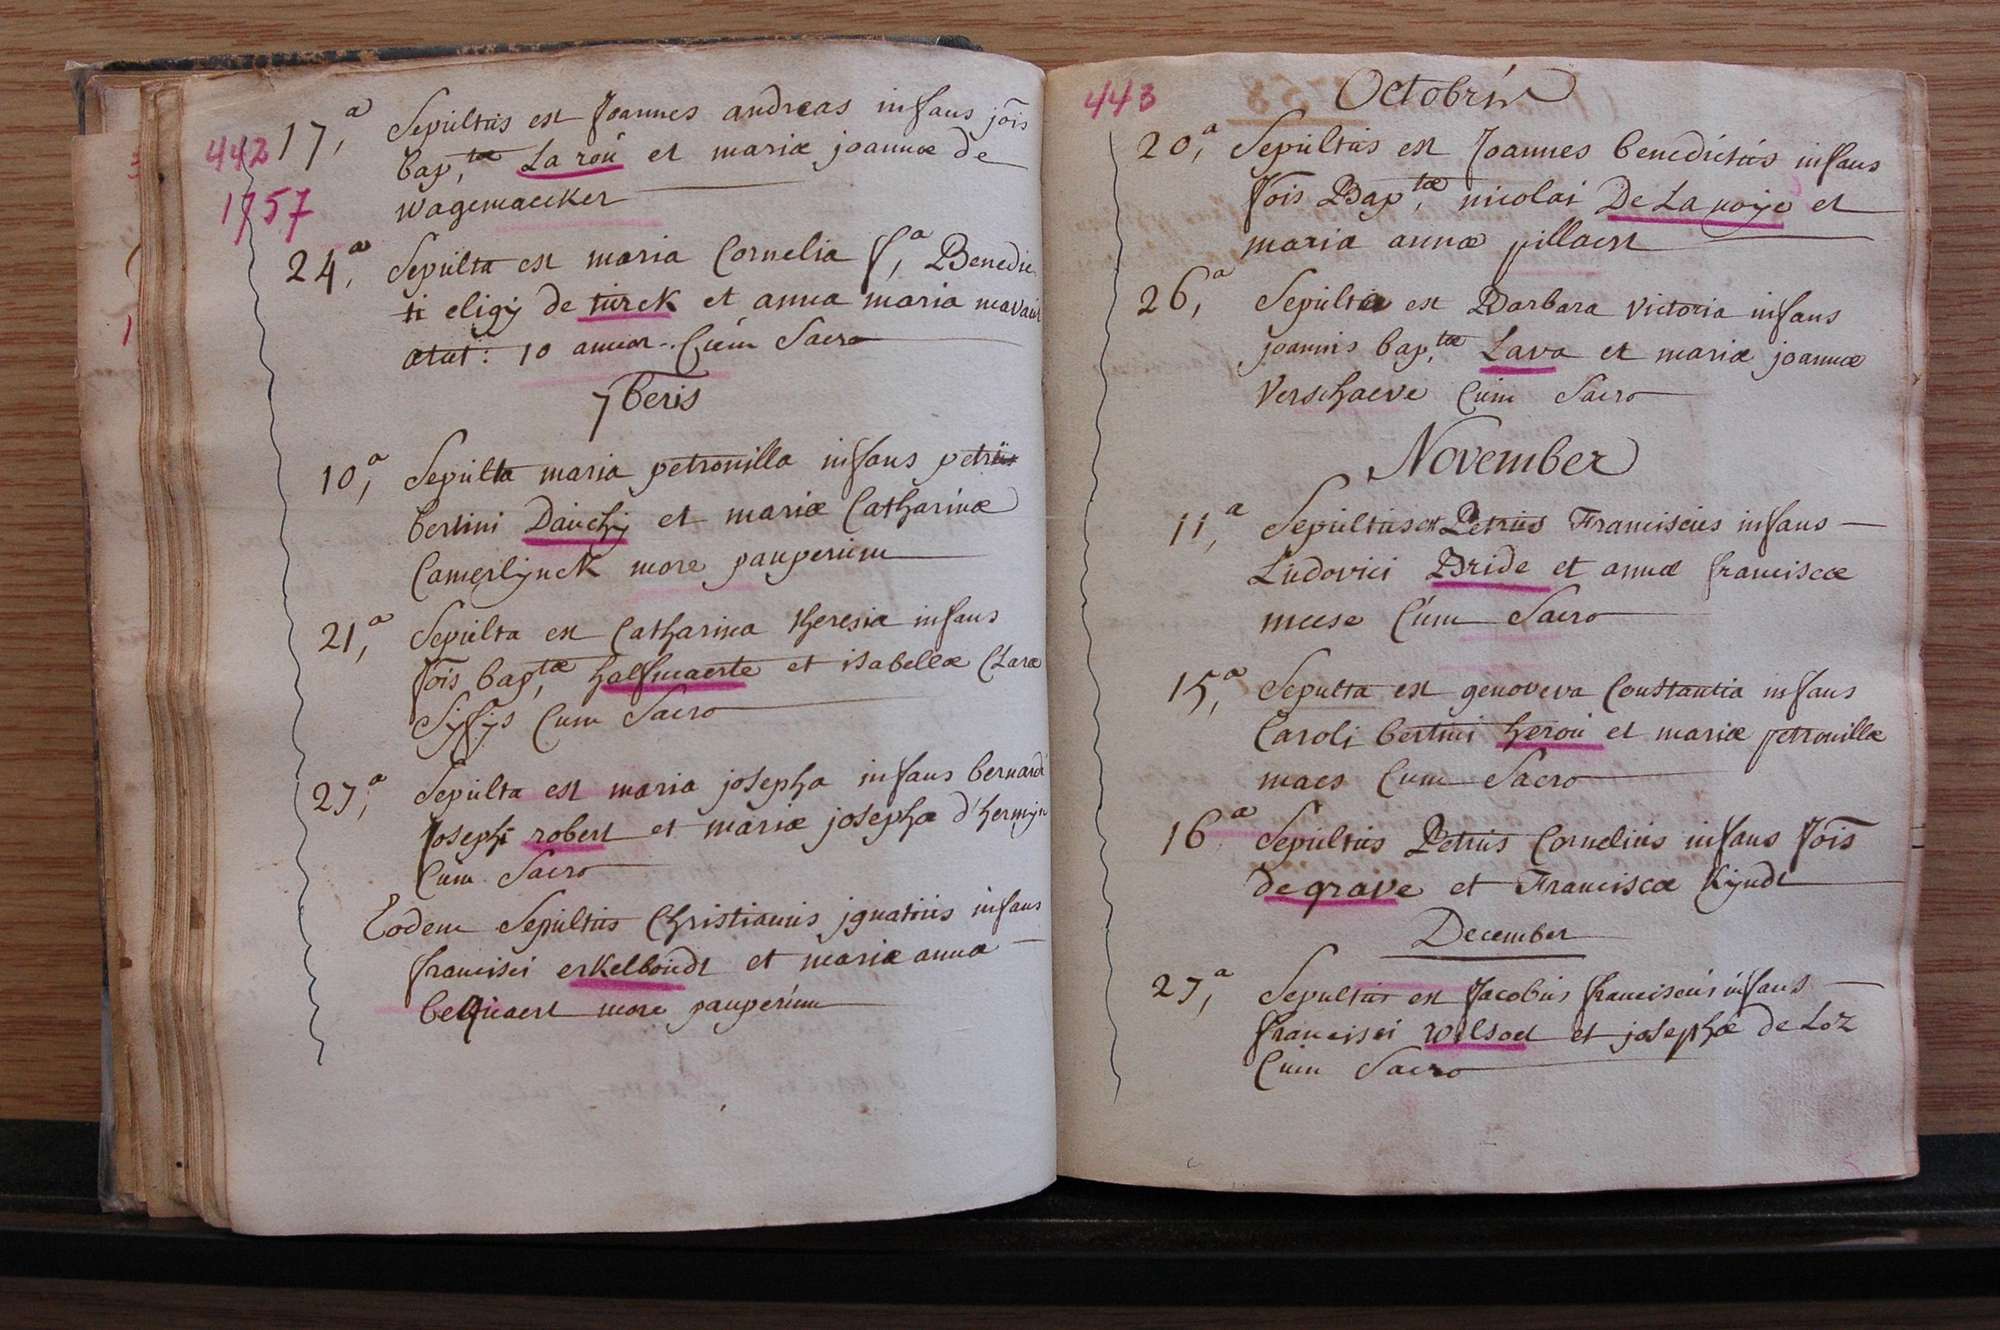 442
1757
17,a Sepultus est Joannes andreas infans jois
bap,tæ La rou et mariæ joannæ de
wagemaecker
24,a Sepulta est maria Cornelia f,a Benedic
ti eligij de turck et anna maria mavaut
ætat: 10 annor.. Cum Sacro
7beris
10,a Sepulta maria petronilla infans petri
bertini Dauchij et mariæ Catharinæ
Camerlijnck more pauperum
21,a Sepulta est Catharina theresia infans
Jois bap,tæ halfmaerte et isabellæ Claræ
Sijssijs Cum Sacro
27,a Sepulta est maria josepha infans bernardi
Josephi robert et mariæ josephæ d'hermijn
Cum Sacro
Eodem Sepultus Christianus ignatius infans
francisci erkelboudt et mariæ anna
belquaert more pauperum
443
Octobris
20,a Sepultus est Joannes benedictus infans
Jois Bap,tæ nicolai De La noije et
maria annæ pillaert
26,a Sepulta est Barbara victoria infans
joannis bap,tæ Lava et mariæ joannæ
Verschaeve Cum Sacro
November
11,a Sepultus est Petrus Franciscus infans
Ludovici Bride et annæ franciscæ
meese Cum Sacro
15,a Sepulta est genoveva Constantia infans
Caroli bertini herou et mariæ petronillæ
maes Cum Sacro
16a Sepultus Petrus Cornelius infans Jois
de grave et Franciscæ Kijndt
December
27,a Sepultus est Jacobus franciscus infans
francisci wilsoet et josephæ de Loz
Cum Sacro